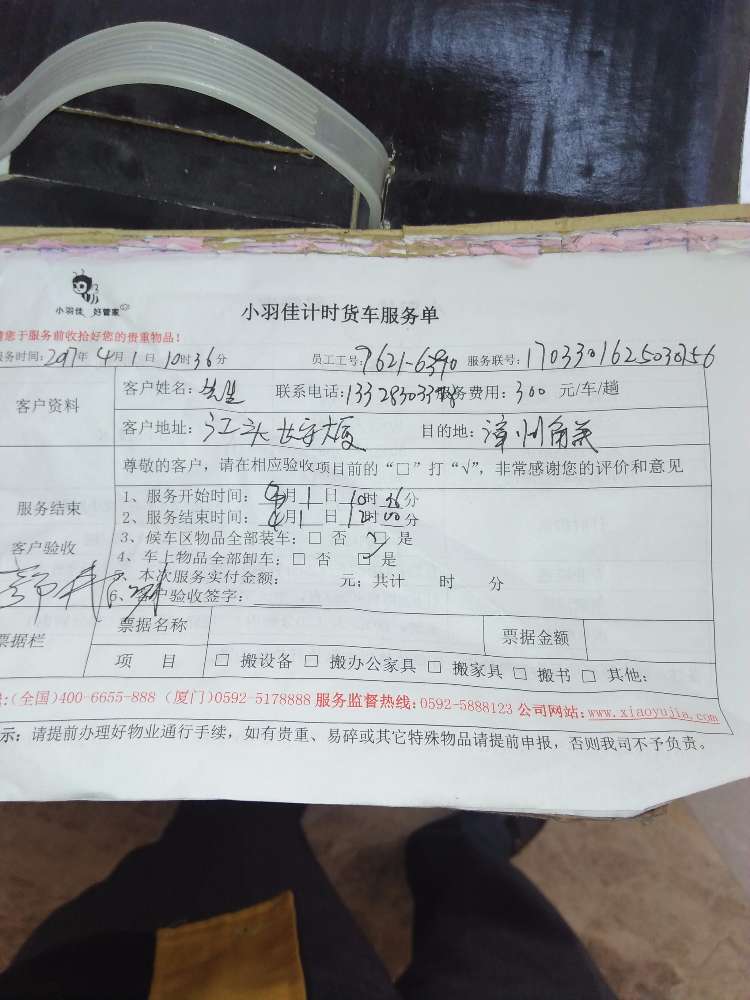 小羽佳 好管家
小羽佳计时货车服务单
请您于服务前收拾好您的贵重物品!
服务时间:2017年 4月 1日 10时36分 员工工号: 服务联号:
客户资料
客户姓名: 联系电话: 服务费用:300 元/车/趟
客户地址:江头 大厦 目的地:漳州角美
尊敬的客户,请在相应验收项目前的“□”打“√”,非常感谢您的评价和意见
服务结束
客户验收
1、服务开始时间:4月1日10时36分
2、服务结束时间:4月1日12时00分
3、候车区物品全部装车:□ 否 ☑ 是
4、车上物品全部卸车:□ 否 ☑ 是
5、本次服务实付金额: 元;共计 时 分
6、客户验收签字:
票据栏
票据名称 票据金额
项 目 □ 搬设备 □ 搬办公家具 □ 搬家具 □ 搬书 □ 其他:
:(全国)400-6655-888 (厦门)0592-5178888 服务监督热线:0592-5888123 公司网站:www.xiaoyujia.com
示:请提前办理好物业通行手续,如有贵重、易碎或其它特殊物品请提前申报,否则我司不予负责。